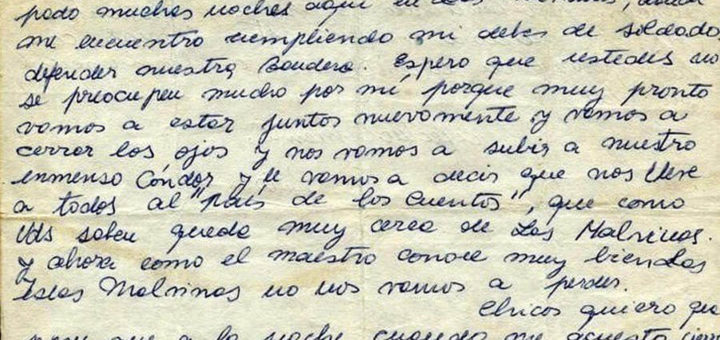 pado muchas noches aquí en
me encuentro cumpliendo mi deber de soldado,
defender nuestra Bandera. Espero que ustedes no
se preocupen mucho por mí, porque muy pronto
vamos a estar juntos nuevamente y vamos a
cerrar los ojos y nos vamos a subir a nuestro
inmenso Cóndor y le vamos a decir que nos lleve
a todos al "país de los Cuentos", que como
Uds saben queda muy cerca de Las Malvinas.
y ahora como el maestro conoce muy bien las
Islas Malvinas no nos vamos a perder.
Chicos quiero que
que a la noche cuando me acuesto cierro